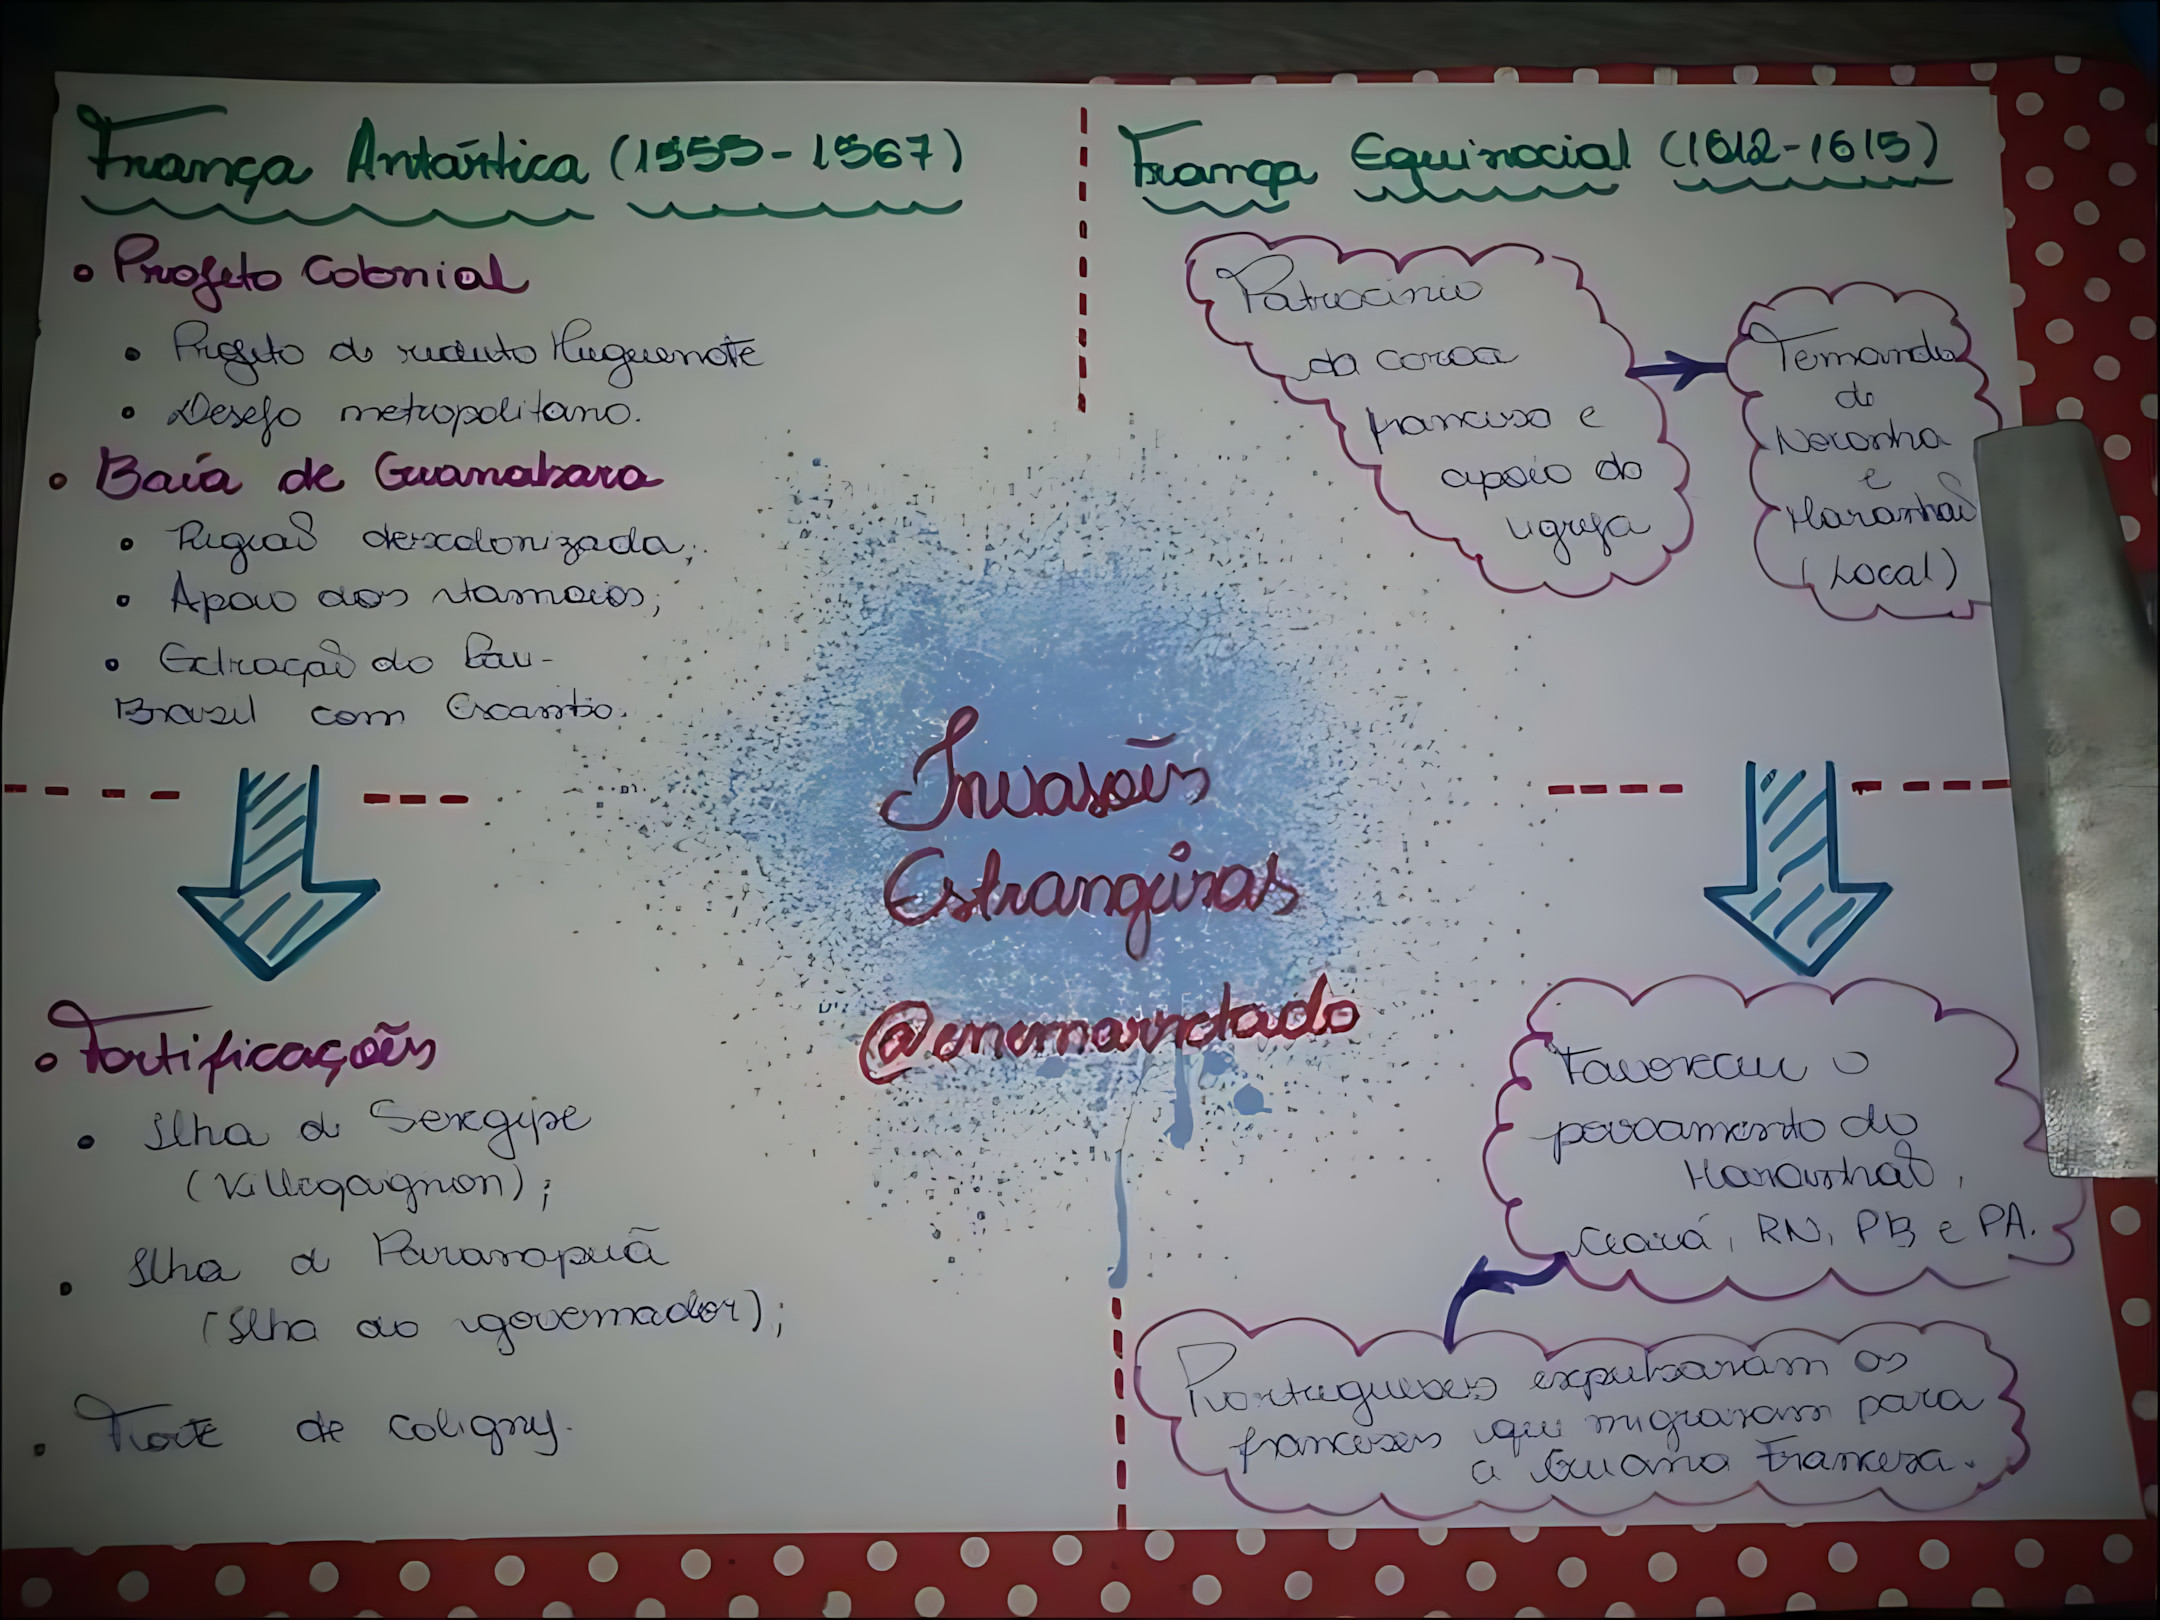 França Antártica (1555-1567)
• Projeto Colonial
• Projeto de reduto Huguenote
• Desejo metropolitano.
• Baía de Guanabara
• Região descolonizada;
• Apoio dos tamoios;
• Extração do Pau-
Brasil com Escambo.
• Fortificações
• Ilha de Sergipe
(Villegaignon);
• Ilha de Paranapuã
(Ilha do governador);
• Forte de Coligny.
Invasões
Estrangeiras
@enemarretado
França Equinocial (1612-1615)
Patrocínio
da coroa
francesa e
apoio da
igreja
Fernando
de
Noronha
e
Maranhão
(Local)
Favoreceu o
povoamento do
Maranhão,
Ceará, RN, PB e PA.
Portugueses expulsaram os
franceses que migraram para
a Guiana Francesa.